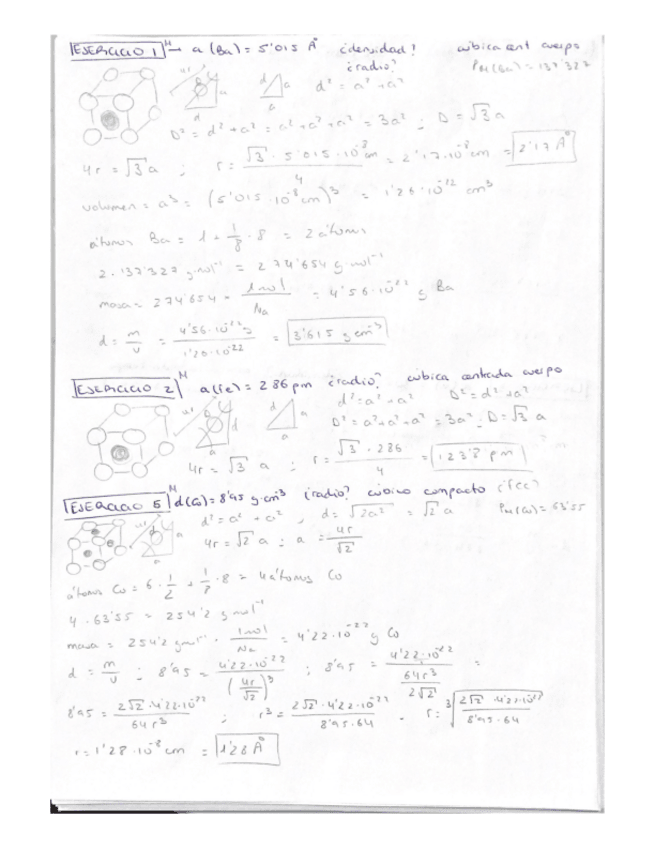 EJERCICIO 1 M → a (Ba) = 5'015 Å ¿densidad? cúbica cent cuerpo
¿radio? PM(Ba) = 137'327
d² = a² + a²
D² = d² + a² = a² + a² + a² = 3a² ; D = √3 a
4r = √3 a ; r = √3 · 5'015·10⁻⁸ cm / 4 = 2'17·10⁻⁸ cm = 2'17 Å
volumen = a³ = (5'015·10⁻⁸ cm)³ = 1'26·10⁻²² cm³
átomos Ba = 1 + 1/8 · 8 = 2 átomos
2 · 137'327 g·mol⁻¹ = 274'654 g·mol⁻¹
masa = 274'654 · 1 mol / Na = 4'56·10⁻²² g Ba
d = m/v = 4'56·10⁻²² g / 1'26·10⁻²² = 3'615 g cm⁻³
EJERCICIO 2 M a(Fe) = 286 pm ¿radio? cúbica centrada cuerpo
d² = a² + a² D² = d² + a²
D² = a² + a² + a² = 3a² ; D = √3 a
4r = √3 a ; r = √3 · 286 / 4 = 123'8 pm
EJERCICIO 5 M d(Co) = 8'95 g cm³ ¿radio? cúbico compacto (fcc)
d² = a² + a² , d = √2a² = √2 a PM(Cu) = 63'55
4r = √2 a ; a = 4r / √2
átomos Co = 6 · 1/2 + 1/8 · 8 = 4 átomos Co
4 · 63'55 = 254'2 g mol⁻¹
masa = 254'2 g mol⁻¹ · 1 mol / Na = 4'22·10⁻²² g Co
d = m/v ; 8'95 = 4'22·10⁻²² / (4r/√2)³ ; 8'95 = 4'22·10⁻²² / 64r³ / 2√2 =
8'95 = 2√2 · 4'22·10⁻²² / 64r³ ; r³ = 2√2 · 4'22·10⁻²² / 8'95·64 . r = ³√2√2 · 4'22·10⁻²² / 8'95·64
r = 1'28·10⁻⁸ cm = 1'28 Å